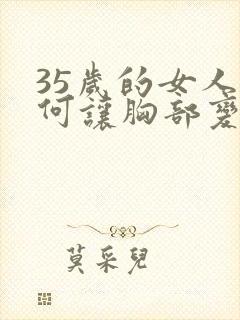 35歲的女人
何讓胸部變
莫采兒